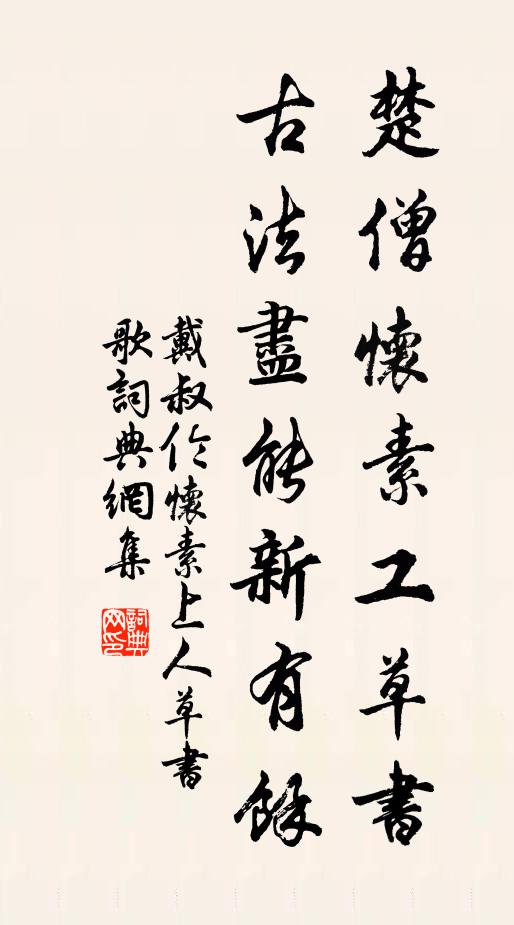 楚僧懷素工草書
古法盡能新有餘
戴叔伦懷素上人草書
歌詞典網集
詞典
网印